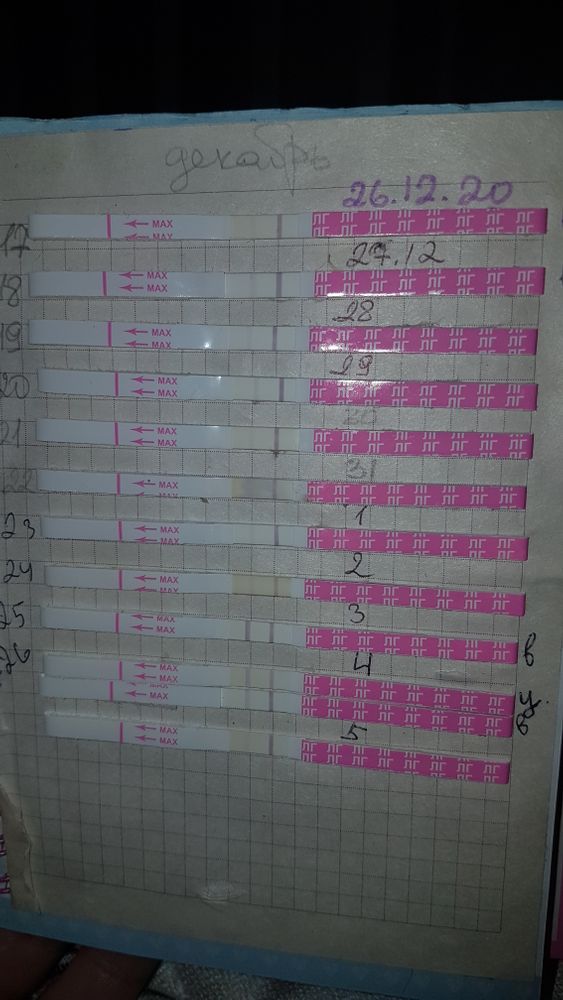 декабрь
26.12.20
17 MAX ЛГ ЛГ ЛГ ЛГ ЛГ ЛГ ЛГ ЛГ
MAX
27.12
18 MAX ЛГ ЛГ ЛГ ЛГ ЛГ ЛГ ЛГ ЛГ
MAX
28
19 MAX ЛГ ЛГ ЛГ ЛГ ЛГ ЛГ ЛГ ЛГ
MAX
29
20 MAX ЛГ ЛГ ЛГ ЛГ ЛГ ЛГ ЛГ ЛГ
MAX
30
21 MAX ЛГ ЛГ ЛГ ЛГ ЛГ ЛГ ЛГ ЛГ
MAX
31
22 MAX ЛГ ЛГ ЛГ ЛГ ЛГ ЛГ ЛГ ЛГ
MAX
1
23 MAX ЛГ ЛГ ЛГ ЛГ ЛГ ЛГ ЛГ ЛГ
MAX
2
24 MAX ЛГ ЛГ ЛГ ЛГ ЛГ ЛГ ЛГ ЛГ
MAX
3
25 MAX ЛГ ЛГ ЛГ ЛГ ЛГ ЛГ ЛГ ЛГ в
MAX
4
26 MAX ЛГ ЛГ ЛГ ЛГ ЛГ ЛГ ЛГ ЛГ у
MAX
MAX ЛГ ЛГ ЛГ ЛГ ЛГ ЛГ ЛГ ЛГ в
5
MAX ЛГ ЛГ ЛГ ЛГ ЛГ ЛГ ЛГ ЛГ
MAX